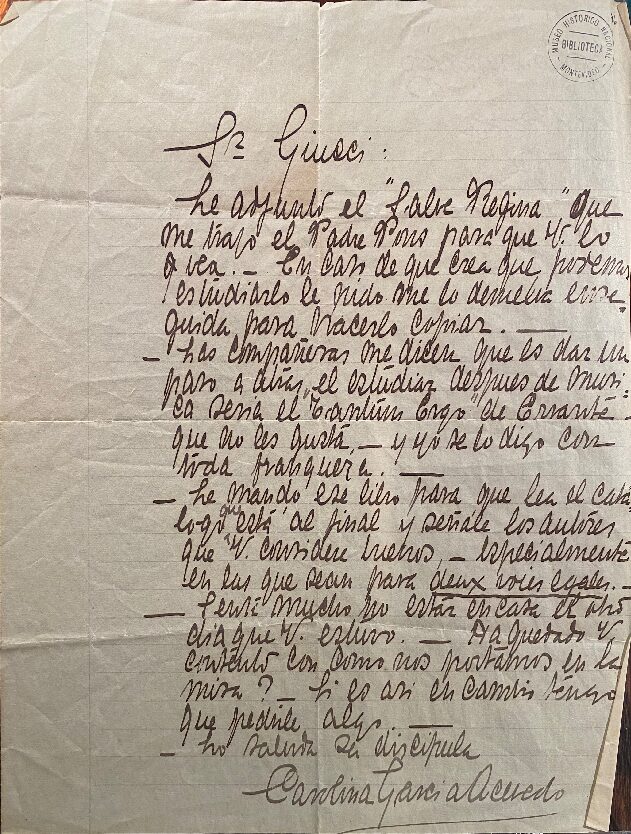 MUSEO HISTORICO NACIONAL
BIBLIOTECA
MONTEVIDEO
Sr. Giucci:
Le adjunto el "Salve Regina" que
me trajo el Padre Pons para que V. lo
vea. — En caso de que crea que podemos
estudiarlo le pido me lo devuelva ense-
guida para hacerlo copiar. —
— Las compañeras me dicen que es dar un
paso a atras, el estudiar despues de musi-
ca seria el "Tantum Ergo" de Erranté -
que no les gusta, — y yo se lo digo con
toda franqueza. —
— Le mando ese libro para que lea el cata
logo que está al final y señale los autores
que V. considere buenos, — especialmente
en las que sean para deux voies egales. —
— Sentí mucho no estar en casa el otro
dia que V. estuvo. — Ha quedado V.
contento con como nos portamos en la
misa? — Si es asi en cambio tengo
que pedirle algo. —
— Lo saluda su discipula
Carolina Garcia Acevedo